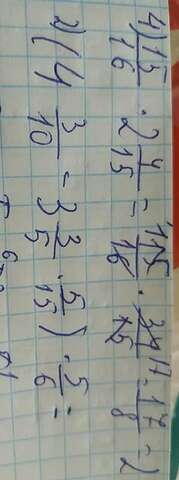 1) 15/16 · 2 4/15 = 15/16 · 34/15 = 17/8 = 2
2) (4 3/10 - 3 3/5 · 5/15) · 5/6 =